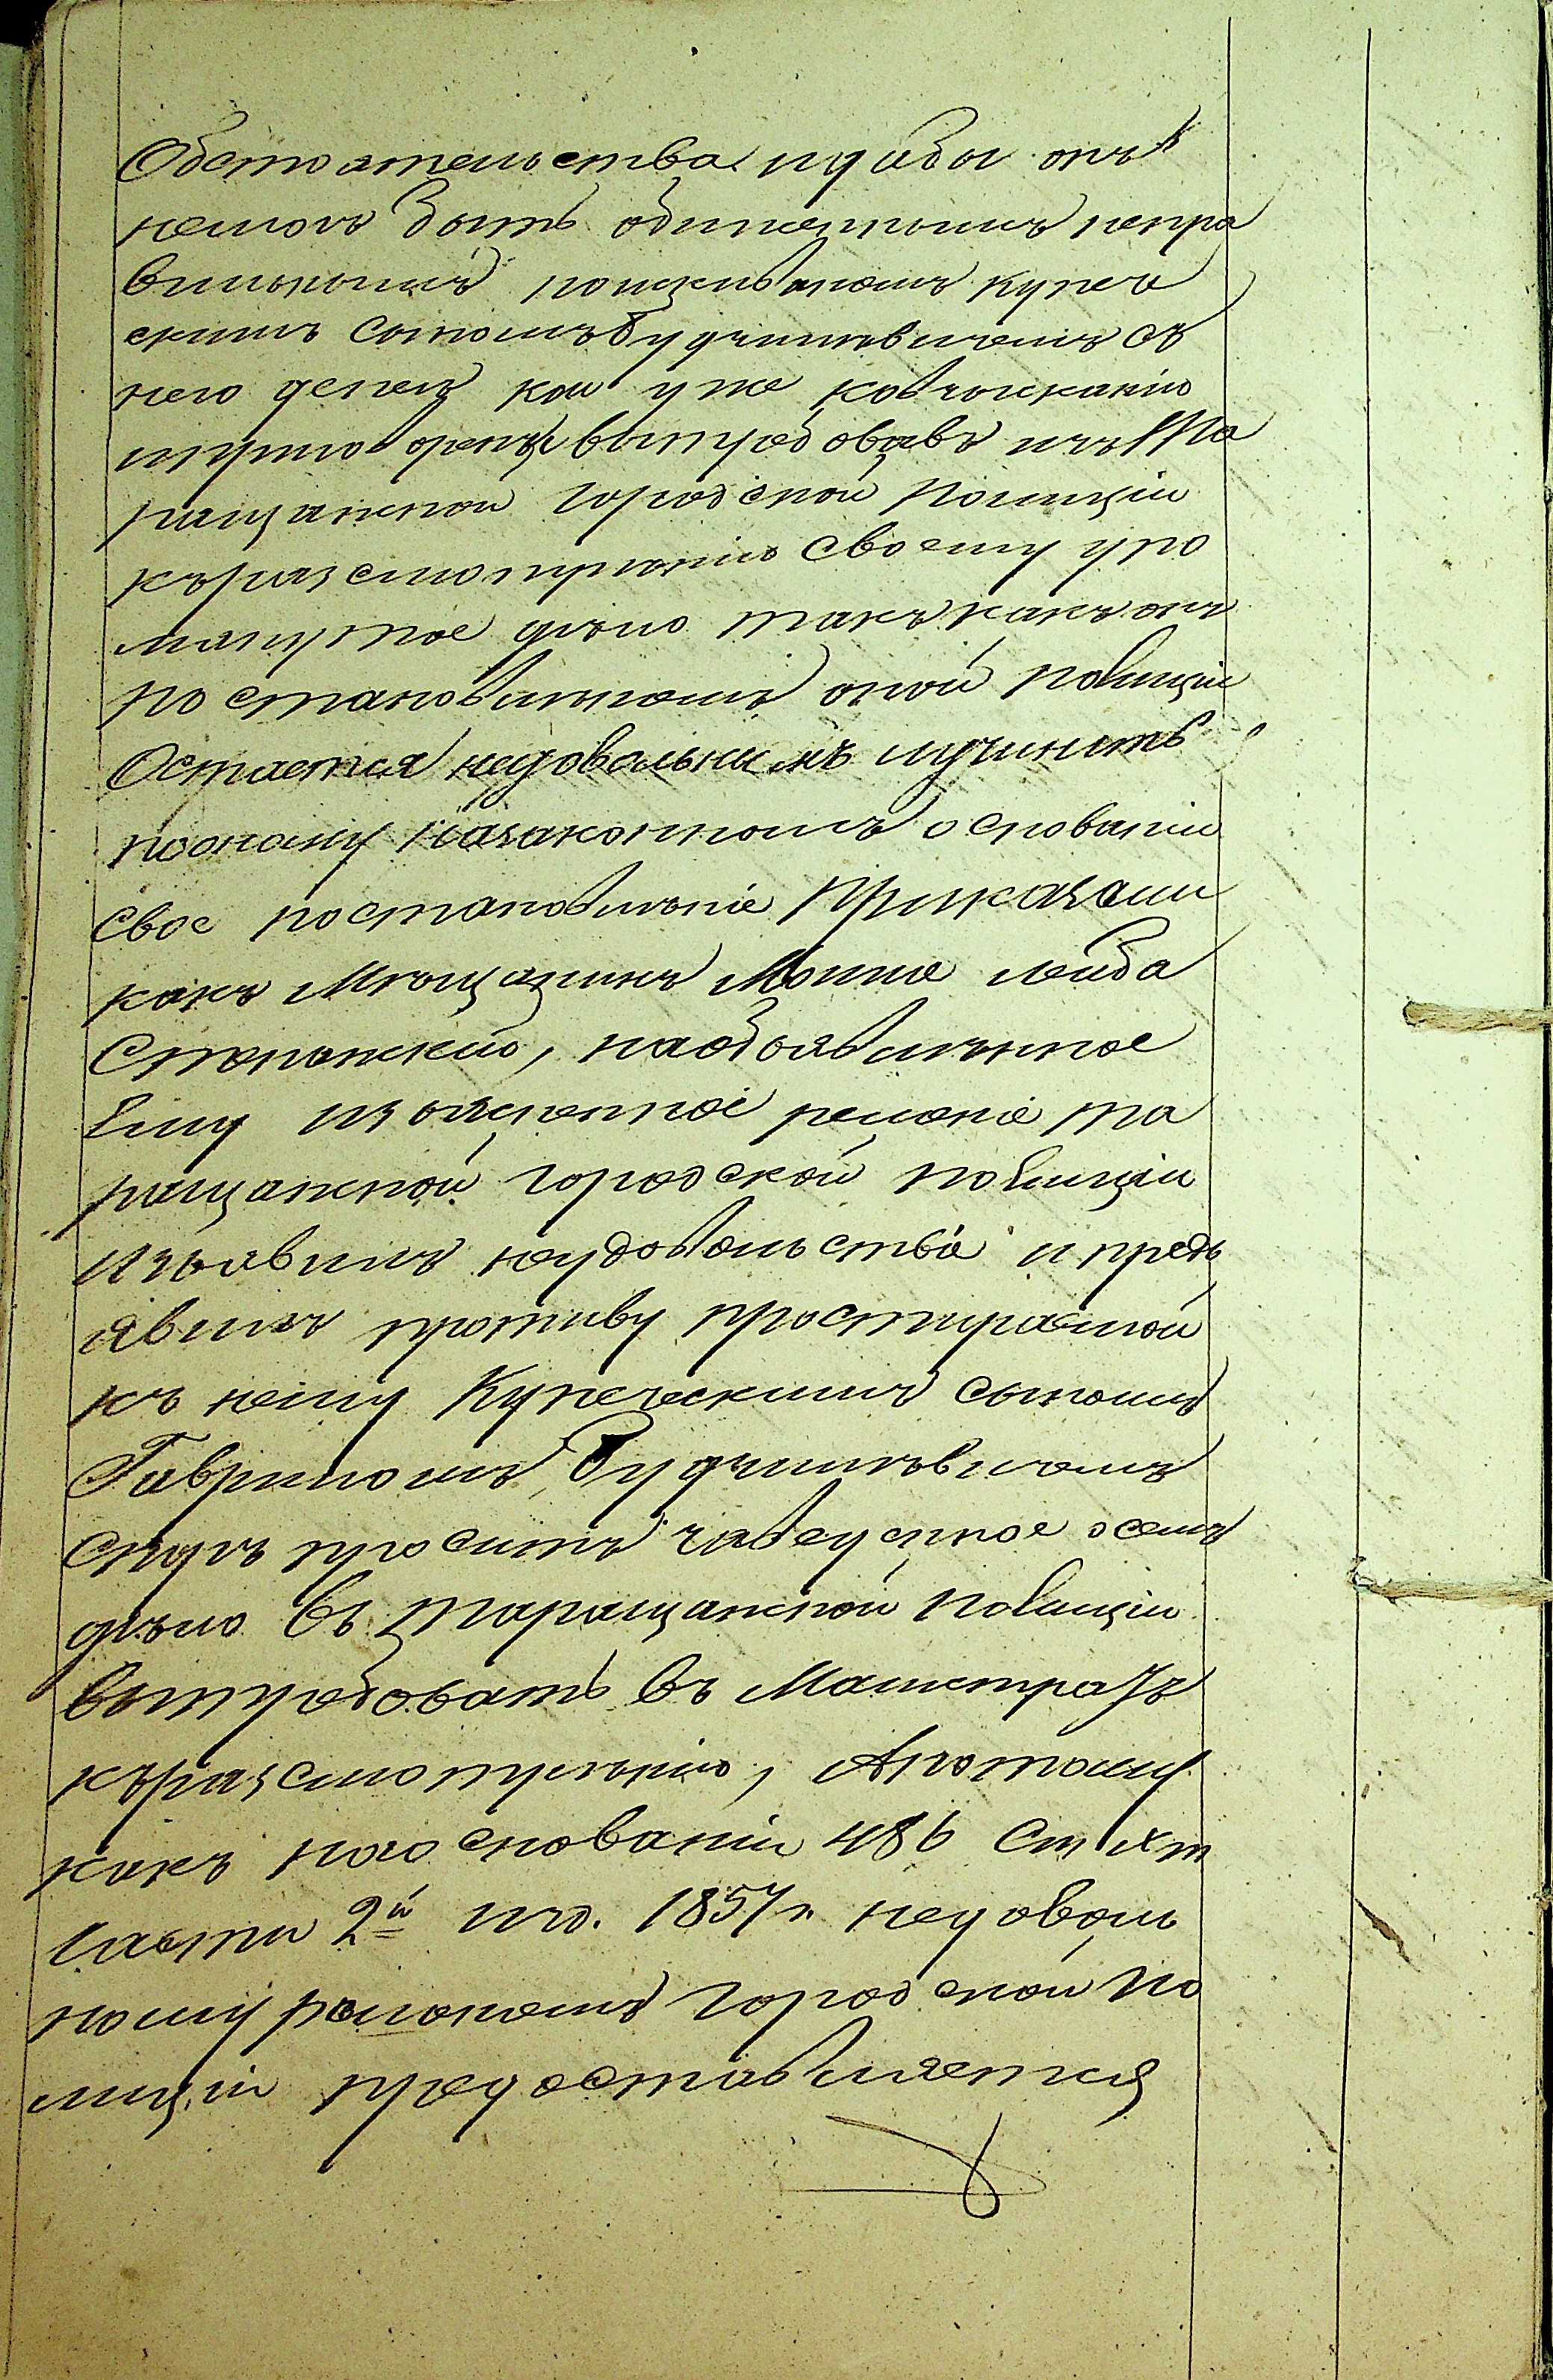 Обстоятельства и дабы онъ
немогъ быть обиженнымъ непра
вильнымъ поискиваніемъ купече
скимъ сыномъ Будчиловичемъ съ
него денегъ кои уже ковзысканію
вытребовавъ изъ Та
ращанской городской Полиціи
къразсмотренію своему упо
мянутое дѣло такъ какъ онъ
постановленіемъ оной полиціи
Остается недовольнымъ и учинить
пооному назаконномъ основаніи
свое постановленіе Приказали
какъ Мѣщанинъ Мошко Лейба
наобъявленное
Ему изъясненное решеніе та
ращанской городской полиціи
изъявилъ неудовольствіе и предъ
явилъ противу простираемой
къ нему Купеческимъ сыномъ
Гавриломъ Будчиловичемъ
просить заведенное о семъ
дѣло въ таращанской полиціи
вытребовать въ Магистратъ
къразсмотренію, Апотому
какъ наоснованіи 486 Ст Хт
части 2й изд. 1857г. недоволь
ному решеніемъ городской по
лиціи предоставляется